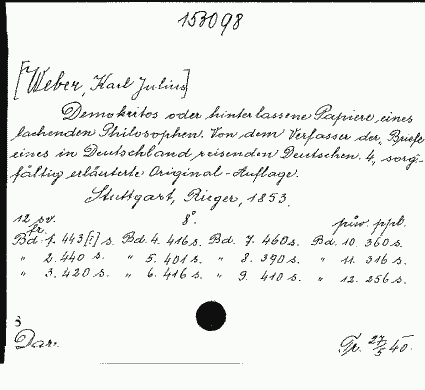 153098
[Weber, Karl Julius]
Demokritos oder hinterlassene Papiere eines
lachenden Philosophen. Von dem Verfasser der „Briefe
eines in Deutschland reisenden Deutschen. 4., sorg-
fältig erläuterte Original-Auflage.
Stuttgart, Rieger, 1853.
12 sv. 8°. pův. ppb.
fr.
Bd. 1. 443[!] s. Bd. 4. 416 s. Bd. 7. 460 s. Bd. 10. 360 s.
" 2. 440 s. " 5. 401 s. " 8. 390 s. " 11. 316 s.
" 3. 420 s. " 6. 416 s. " 9. 410 s. " 12. 256 s.
Dar. 27/5 40.